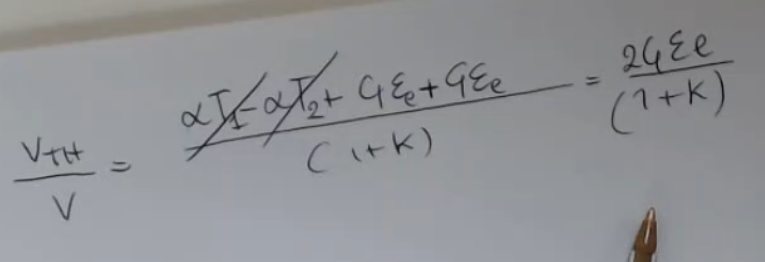 V_TH / V = (αT₁ - αT₂ + Gε_e + Gε_e) / (1+K) = 2Gεe / (1+K)